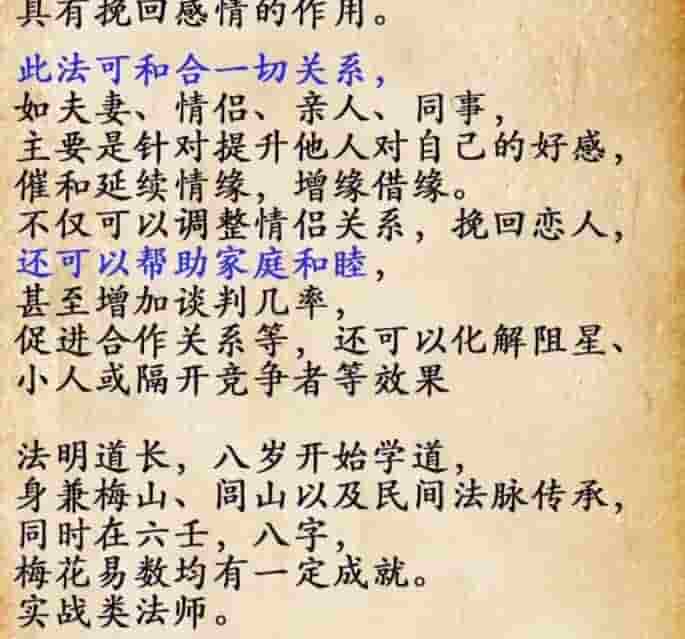 具有挽回感情的作用。
此法可和合一切关系，
如夫妻、情侣、亲人、同事，
主要是针对提升他人对自己的好感，
催和延续情缘，增缘借缘。
不仅可以调整情侣关系，挽回恋人，
还可以帮助家庭和睦，
甚至增加谈判几率，
促进合作关系等，还可以化解阻星、
小人或隔开竞争者等效果
法明道长，八岁开始学道，
身兼梅山、闾山以及民间法脉传承，
同时在六壬，八字，
梅花易数均有一定成就。
实战类法师。